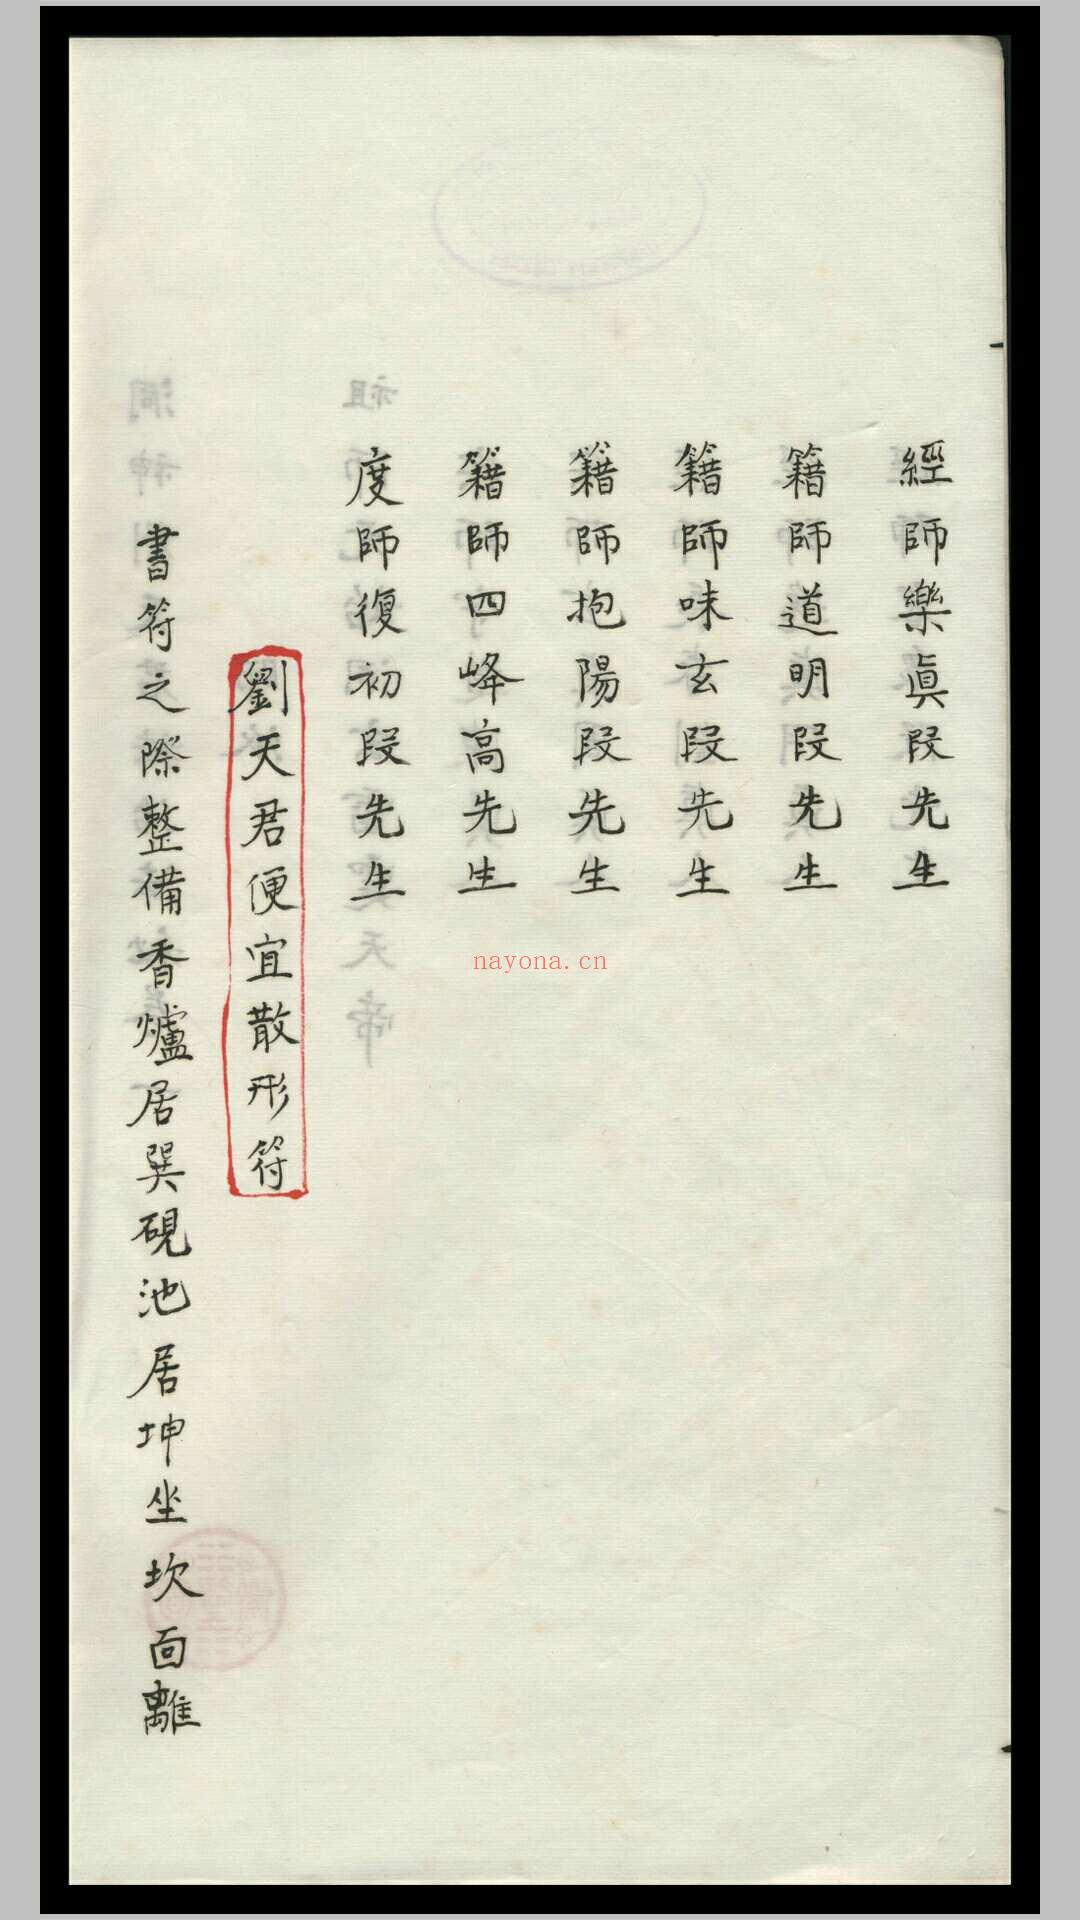 經師樂真段先生
籍師道明段先生
籍師味玄段先生
籍師抱陽段先生
籍師四峰高先生
度師復初段先生
劉天君便宜散形符
書符之際整備香爐居巽硯池居坤坐坎面離
nayona.cn